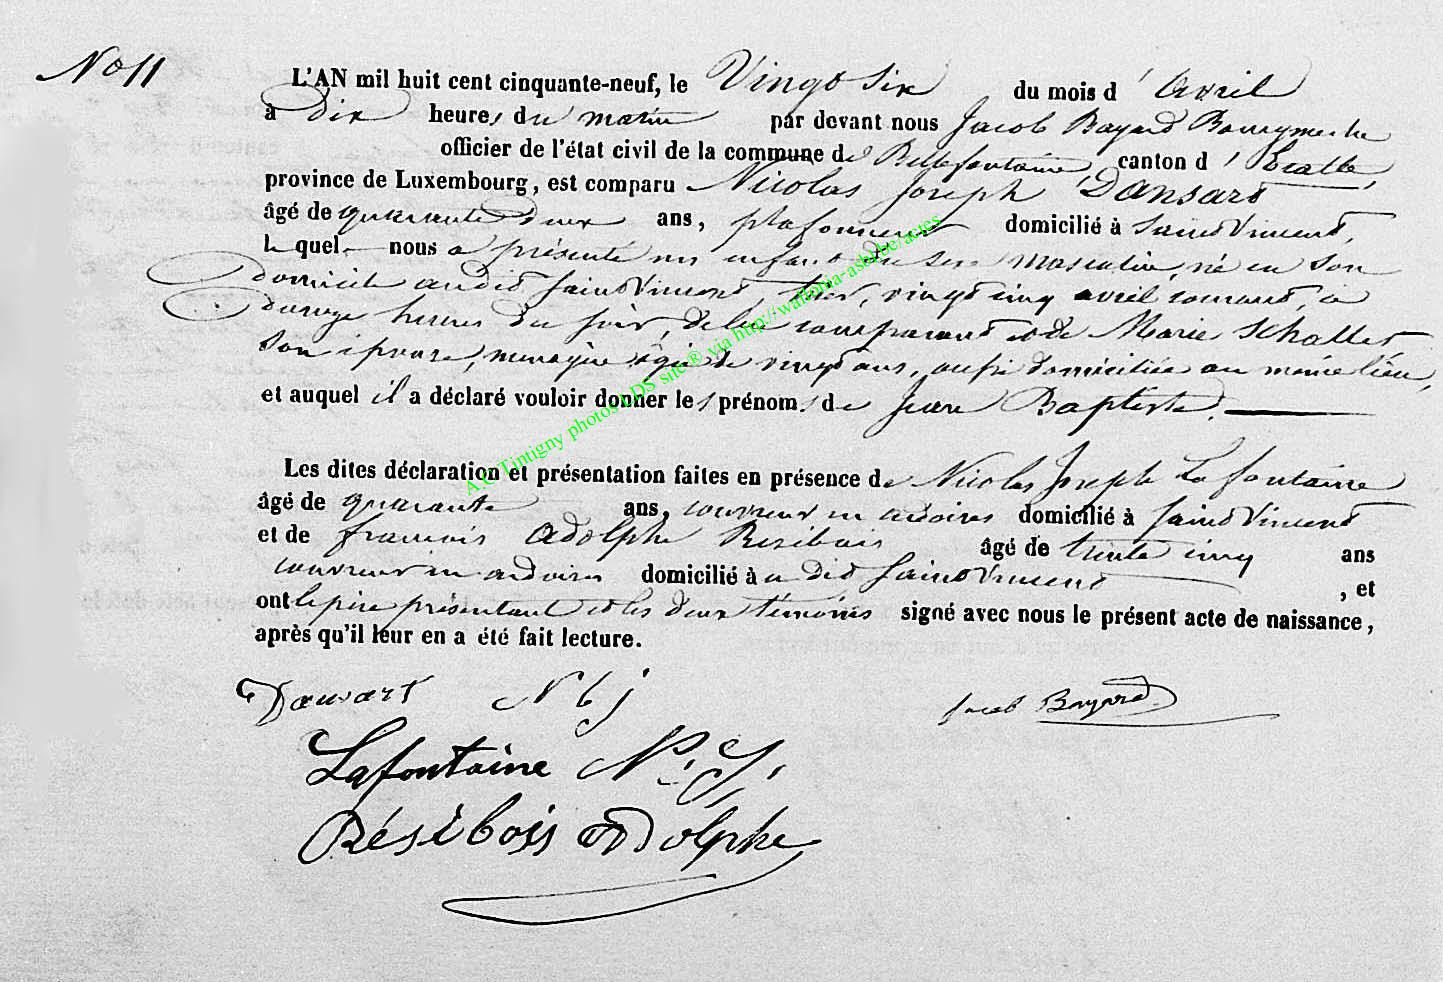 No 11
L'AN mil huit cent cinquante-neuf, le Vingt Six du mois d'avril
à Dix heures du matin par devant nous Jacob Bayard Bourgmestre
officier de l'état civil de la commune de Bellefontaine, canton d'Etalle,
province de Luxembourg, est comparu Nicolas Joseph Dansart
âgé de quarante deux ans, plafonneur domicilié à Saint Vincent,
lequel nous a présenté un enfant du sexe masculin, né en son
domicile audit Saint Vincent, hier, vingt cinq avril courant, à
heures du soir, de lui comparant et de Marie Schalbe
son épouse, ménagère âgée de vingt ans, aussi domiciliée au même lieu,
et auquel il a déclaré vouloir donner les prénoms de Jean Baptiste.
Les dites déclaration et présentation faites en présence de Nicolas Joseph Lafontaine
âgé de quarante ans, couvreur en ardoises domicilié à Saint Vincent
et de francois Adolphe Resibois âgé de trente cinq ans
couvreur en ardoises domicilié à udit Saint Vincent, et
ont le père présentant et les deux témoins signé avec nous le présent acte de naissance,
après qu'il leur en a été fait lecture.
Dansart N J Jacob Bayard
Lafontaine N. J.
Résibois Adolphe
A.C Tintigny photos LDS site ® via http://wallonia-asbl.be/actes